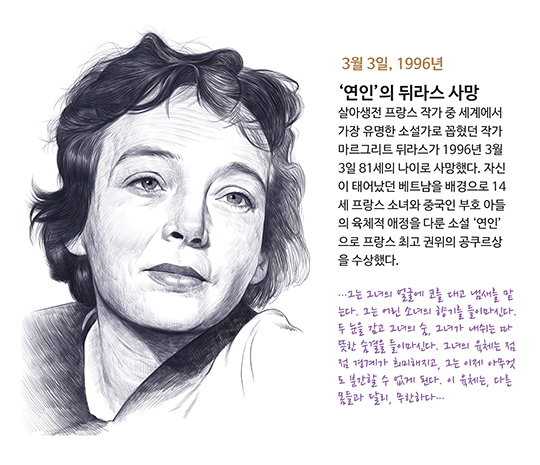 3월 3일, 1996년
‘연인’의 뒤라스 사망
살아생전 프랑스 작가 중 세계에서
가장 유명한 소설가로 꼽혔던 작가
마르그리트 뒤라스가 1996년 3월
3일 81세의 나이로 사망했다. 자신
이 태어났던 베트남을 배경으로 14
세 프랑스 소녀와 중국인 부호 아들
의 육체적 애정을 다룬 소설 ‘연인’
으로 프랑스 최고 권위의 공쿠르상
을 수상했다.
…그는 그녀의 얼굴에 코를 대고 냄새를 맡
는다. 그는 어린 소녀의 향기를 들이마신다.
두 눈을 감고 그녀의 숨, 그녀가 내쉬는 따
뜻한 숨결을 들이마신다. 그녀의 육체는 점
점 경계가 희미해지고, 그는 이제 아무것
도 분간할 수 없게 된다. 이 육체는, 다른
몸들과 달리, 무한하다…